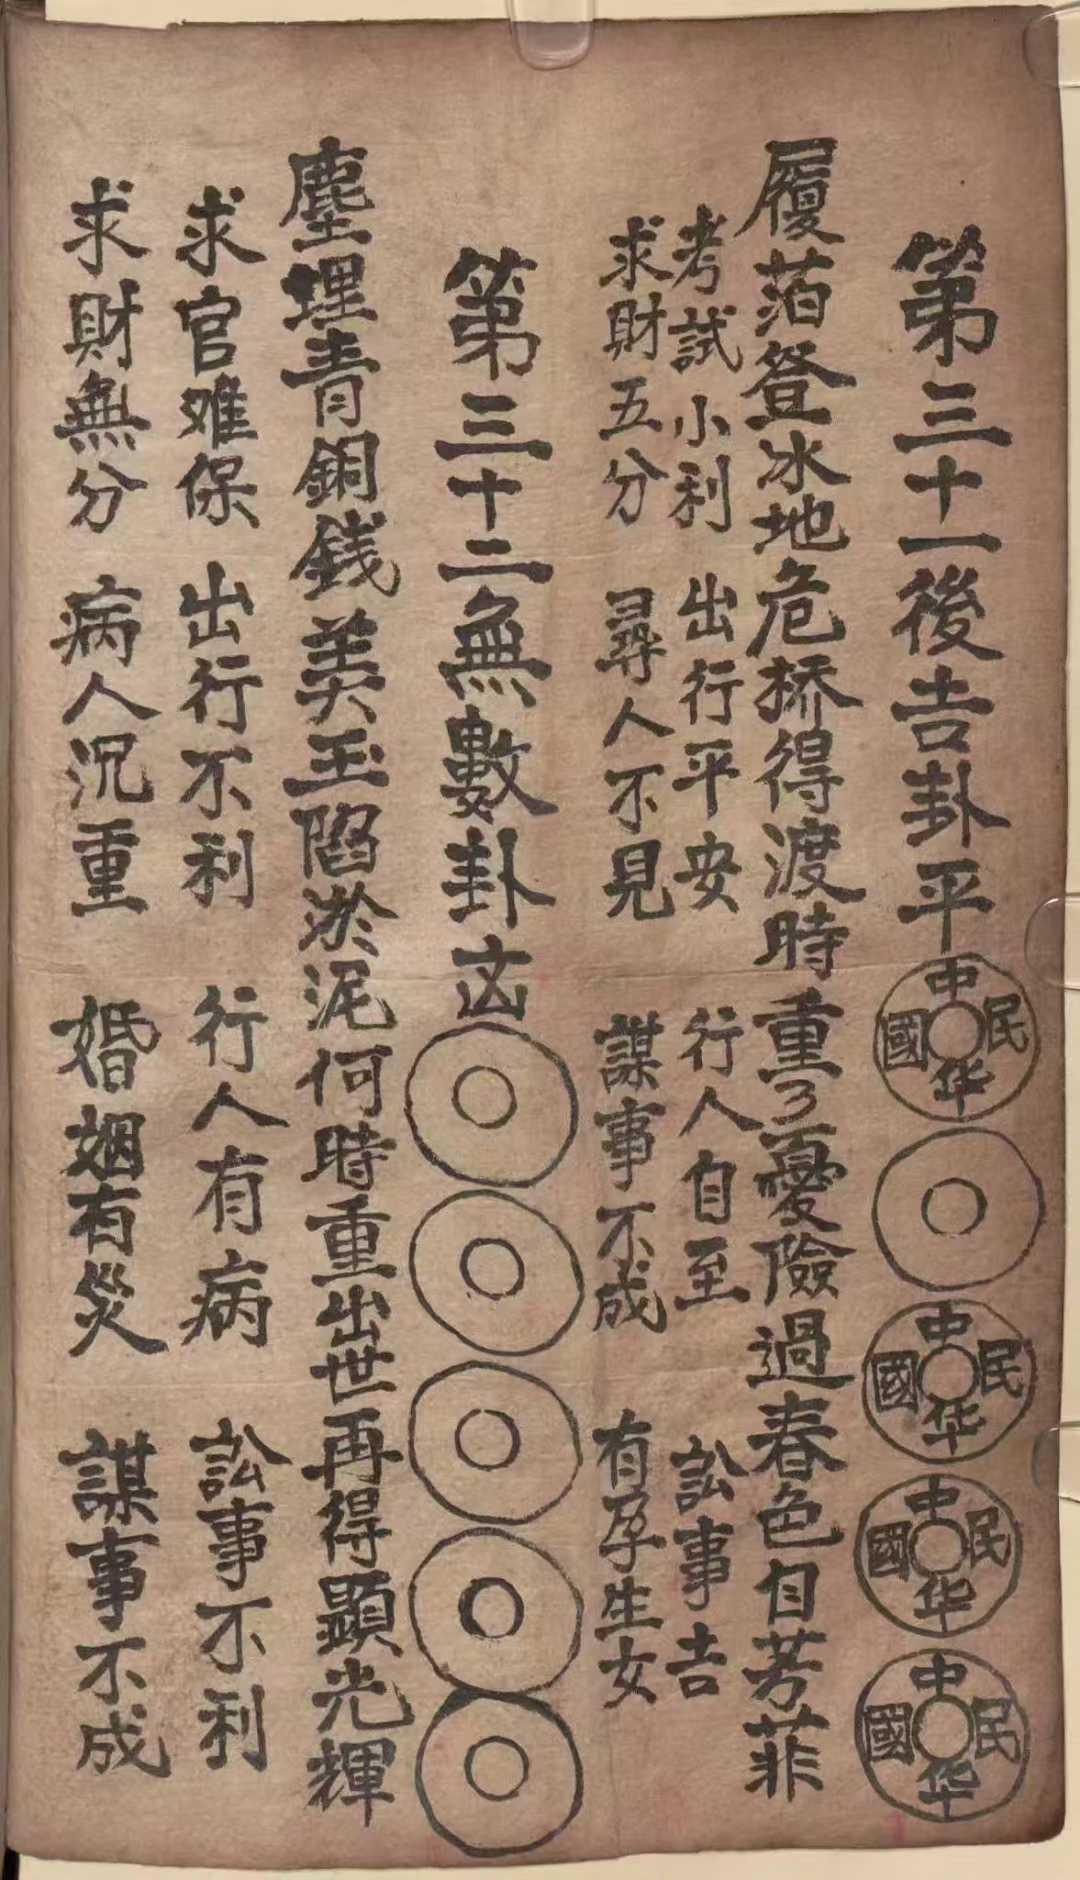 第三十一後吉卦平
中華民國
中華民國
中華民國
中華民國
履萡登冰地危桥得渡時重〻憂險過春色自芳菲
考試小利 出行平安 行人自至 訟事吉
求財五分 尋人不見 謀事不成 有孕生女
第三十二無數卦凶
塵埋青銅錢美玉陷淤泥何時重出世再得顕光輝
求官难保 出行不利 行人有病 訟事不利
求財無分 病人沉重 婚姻有災 謀事不成